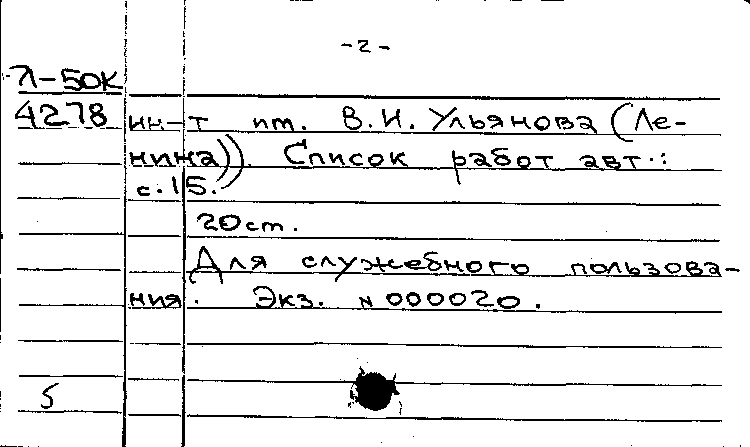 - 2 -
Л-50К
4278
ин-т им. В.И. Ульянова (Ле-
нина)). Список работ авт.:
с. 15.
20 см.
Для служебного пользова-
ния. Экз. N 000020.
5